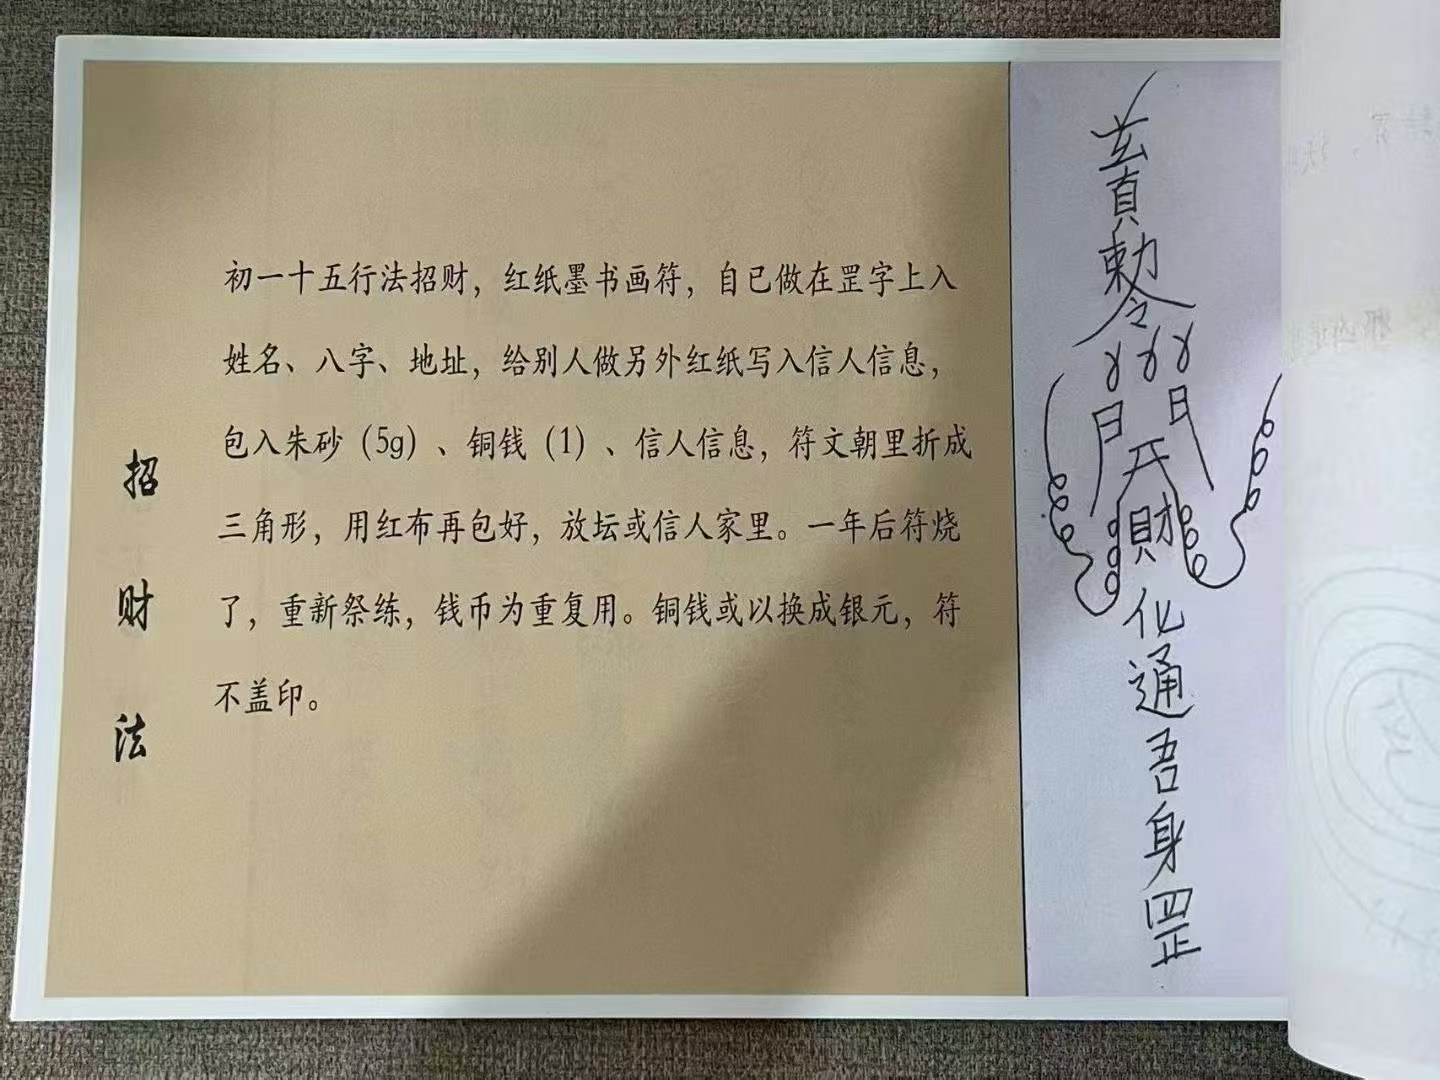 招财法
初一十五行法招财，红纸墨书画符，自已做在罡字上入
姓名、八字、地址，给别人做另外红纸写入信人信息，
包入朱砂（5g）、铜钱（1）、信人信息，符文朝里折成
三角形，用红布再包好，放坛或信人家里。一年后符烧
了，重新祭练，钱币为重复用。铜钱或以换成银元，符
不盖印。
勅令
開財
化通吾身罡